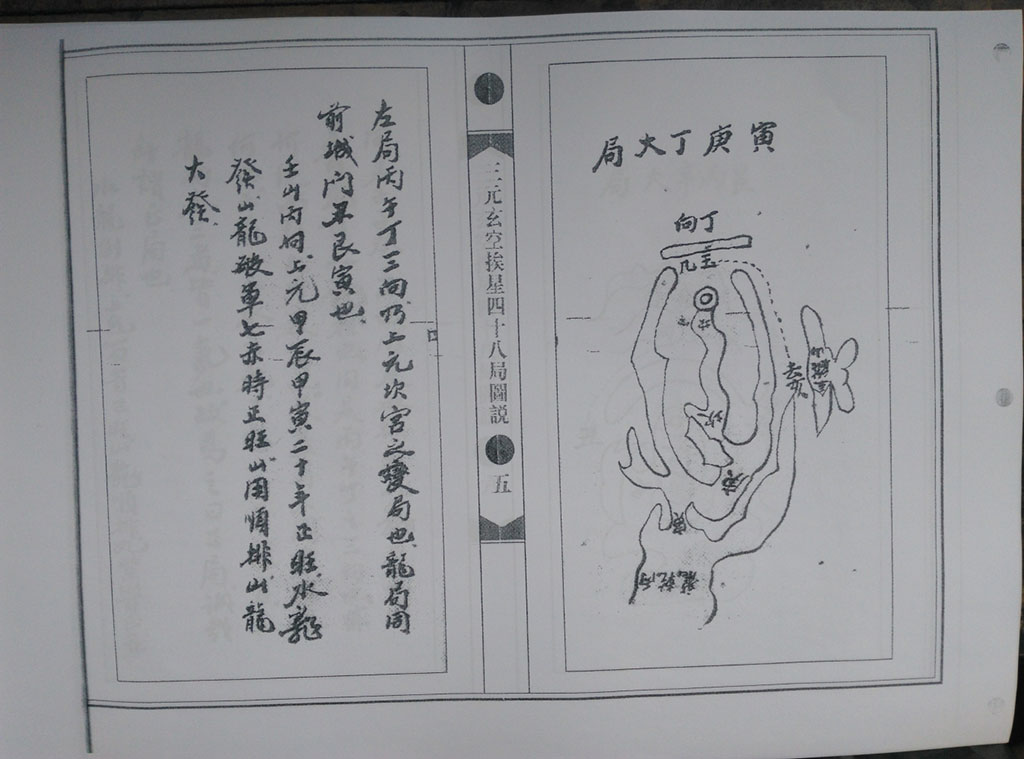 寅庚丁火局
丁向
玉几
坎
三元玄空挨星四十八局圖説
五
左局丙午丁三向乃上元坎宮之變局也龍局同
前城門丑艮寅也
壬山丙向上元甲辰甲寅二十年正旺水龍
發山龍破軍七赤時正旺山用順排山龍
大發